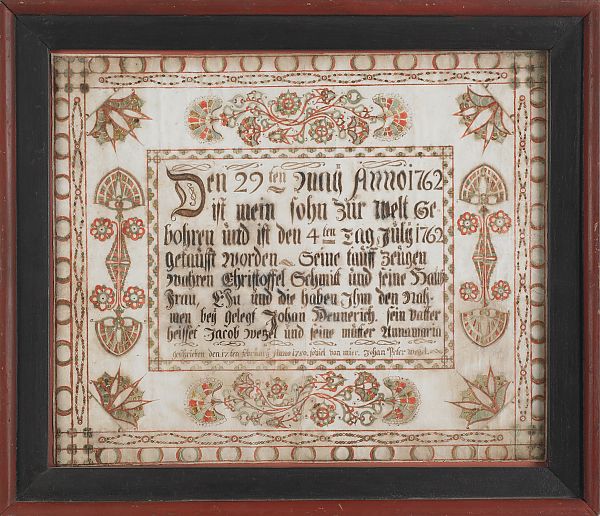 Den 29 ten May Anno 1762
ist mein sohn zur welt ge
bohren und ist den 4 ten Tag July 1762
getaufft worden Seine tauff zeugen
wahren Christoffel Schmit und seine Haus
Frau, Ehn und die haben Ihm den Nah-
men bey gelegt Johan Hennerich, sein vatter
heisset Jacob Wezel und seine mutter Annamaria
Geschrieben den 17 ten february Anno 1780 von mier. Johan Peter Wezel.